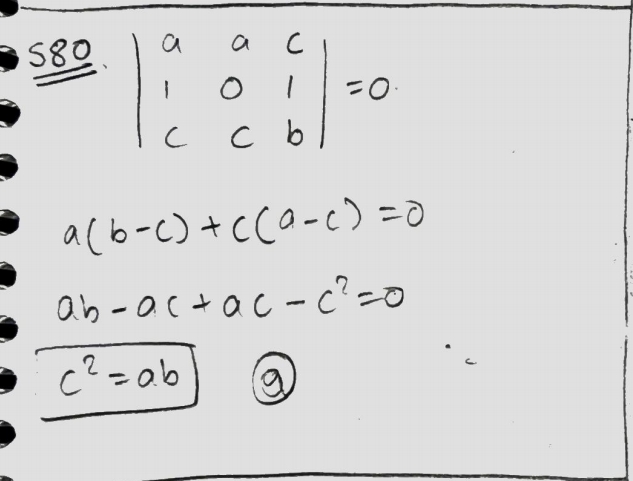 S80. | a a c |
| 1 0 1 | = 0.
| c c b |
a(b-c) + c(a-c) = 0
ab - ac + ac - c² = 0
c² = ab (a)